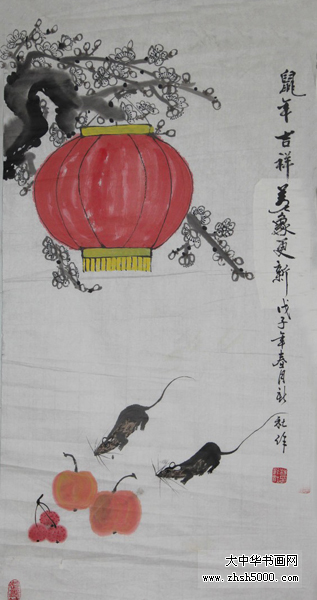 鼠年吉祥萬象更新戊子年春月作
大中华书画网
www.zhsh5000.com